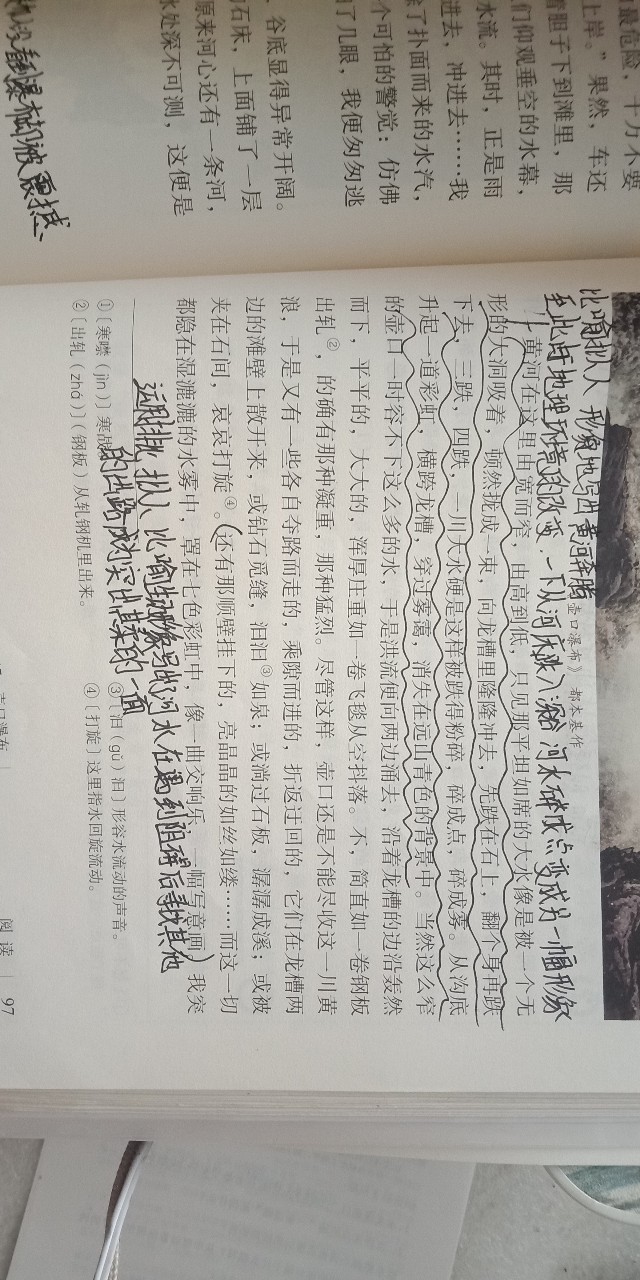 最危险，千万不要
上岸。”果然，车还
着胆子下到滩里，那
们仰观垂空的水幕，
水流。其时，正是雨
进去，冲进去……我
除了扑面而来的水汽，
个可怕的警觉：仿佛
了几眼，我便匆匆逃
谷底显得异常开阔。
石床，上面铺了一层
原来河心还有一条河，
水处深不可测，这便是
没看到瀑布却被震撼
壶口瀑布》 郝本基作
比喻拟人 形象地写出黄河奔腾
至此时地理环境的改变 一下从河床跌入深谷 河水碎成点变成另一幅形象
黄河在这里由宽而窄，由高到低，只见那平坦如席的大水像是被一个无
形的大洞吸着，顿然拢成一束，向龙槽里隆隆冲去，先跌在石上，翻个身再跌
下去，三跌，四跌，一川大水硬是这样被跌得粉碎，碎成点，碎成雾。从沟底
升起一道彩虹，横跨龙槽，穿过雾霭，消失在远山青色的背景中。当然这么窄
的壶口一时容不下这么多的水，于是洪流便向两边涌去，沿着龙槽的边沿轰然
而下，平平的，大大的，浑厚庄重如一卷飞毯从空抖落。不，简直如一卷钢板
出轧②，的确有那种凝重，那种猛烈。尽管这样，壶口还是不能尽收这一川黄
浪，于是又有一些各自夺路而走的，乘隙而进的，折返迂回的，它们在龙槽两
边的滩壁上散开来，或钻石觅缝，汩汩③如泉；或淌过石板，潺潺成溪；或被
夹在石间，哀哀打旋④。还有那顺壁挂下的，亮晶晶的如丝如缕……而这一切
都隐在湿漉漉的水雾中，罩在七色彩虹中，像一曲交响乐，一幅写意画。我突
运用排比 拟人 比喻生动形象写出河水在遇到阻碍后寻找其他
的出路成为突出其柔的一面
①〔寒噤（jìn）〕寒战
②〔出轧（zhá）〕（钢板）从轧钢机里出来。
③〔汩（gǔ）汩〕形容水流动的声音。
④〔打旋〕这里指水回旋流动。
阅读 97